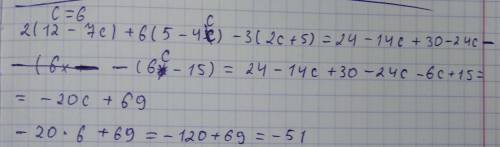 c = 6
2(12 - 7c) + 6(5 - 4c) - 3(2c + 5) = 24 - 14c + 30 - 24c -
- (6c - 15) = 24 - 14c + 30 - 24c - 6c + 15 =
= - 20c + 69
- 20 · 6 + 69 = - 120 + 69 = - 51